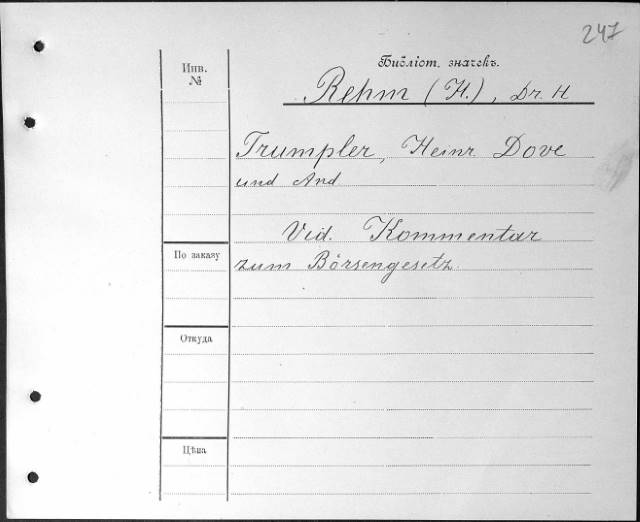 247
Библіот. значекъ.
Инв.
№
Rehm (H.), Dr. H
Trumpler, Heinr. Dove
und And
Vid. Kommentar
По заказу
zum Börsengesetz.
Откуда
Цѣна